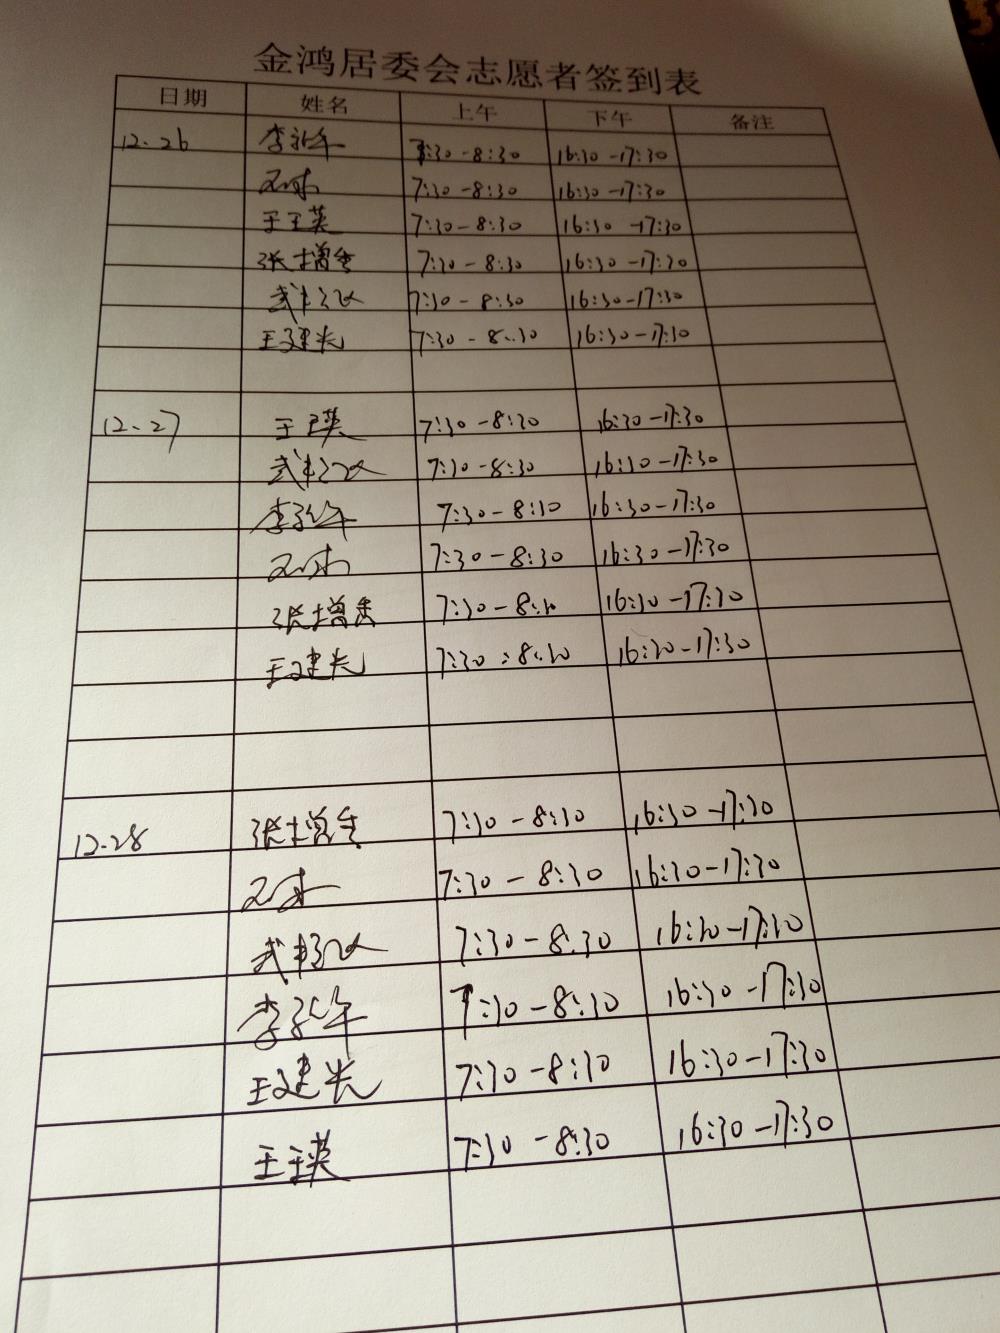 金鸿居委会志愿者签到表
日期 姓名 上午 下午 备注
12.26 李 7:30-8:30 16:30-17:30
7:30-8:30 16:30-17:30
王玉英 7:30-8:30 16:30-17:30
张增香 7:30-8:30 16:30-17:30
武 7:30-8:30 16:30-17:30
王建光 7:30-8:30 16:30-17:30
12.27 王瑛 7:30-8:30 16:30-17:30
武 7:30-8:30 16:30-17:30
李 7:30-8:30 16:30-17:30
7:30-8:30 16:30-17:30
张增香 7:30-8:30 16:30-17:30
王建光 7:30-8:30 16:30-17:30
12.28 张增香 7:30-8:30 16:30-17:30
7:30-8:30 16:30-17:30
武 7:30-8:30 16:30-17:30
李 7:30-8:30 16:30-17:30
王建光 7:30-8:30 16:30-17:30
王瑛 7:30-8:30 16:30-17:30